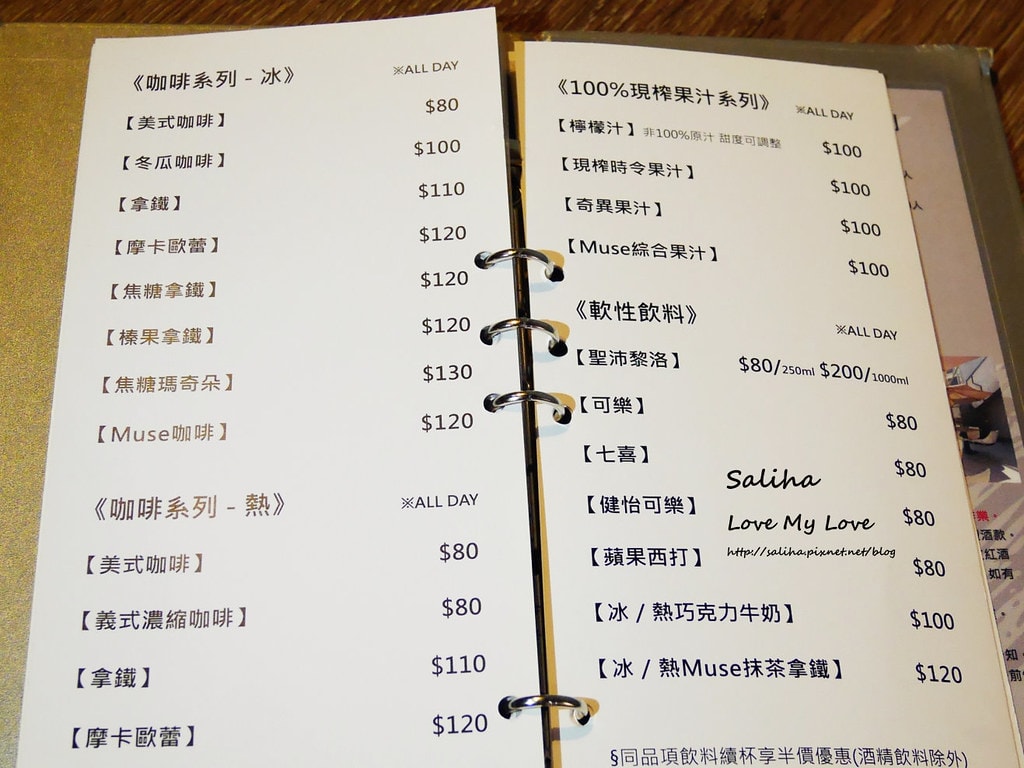 《咖啡系列 - 冰》 ※ALL DAY
【美式咖啡】 $80
【冬瓜咖啡】 $100
【拿鐵】 $110
【摩卡歐蕾】 $120
【焦糖拿鐵】 $120
【榛果拿鐵】 $120
【焦糖瑪奇朵】 $130
【Muse咖啡】 $120
《咖啡系列 - 熱》 ※ALL DAY
【美式咖啡】 $80
【義式濃縮咖啡】 $80
【拿鐵】 $110
【摩卡歐蕾】 $120
《100%現榨果汁系列》 ※ALL DAY
【檸檬汁】非100%原汁 甜度可調整 $100
【現榨時令果汁】 $100
【奇異果汁】 $100
【Muse綜合果汁】 $100
《軟性飲料》 ※ALL DAY
【聖沛黎洛】 $80/250ml $200/1000ml
【可樂】 $80
【七喜】 $80
【健怡可樂】 $80
【蘋果西打】 $80
【冰 / 熱巧克力牛奶】 $100
【冰 / 熱Muse抹茶拿鐵】 $120
§同品項飲料續杯享半價優惠(酒精飲料除外)
Saliha
Love My Love
http://saliha.pixnet.net/blog
人
人
業。
酒款,
紅酒
如有
知,